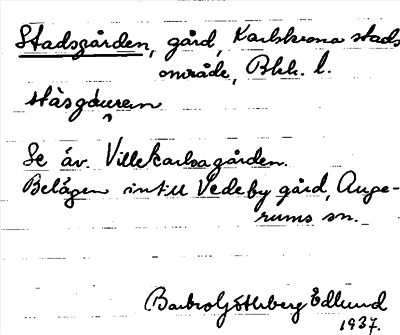 Stadsgården, gård, Karlskrona stads
område, Blek. l.
Se äv. Villekarlsagården.
Belägen intill Vedeby gård, Auge-
rums sn.
Barbro Götherberg Edlund
1937.